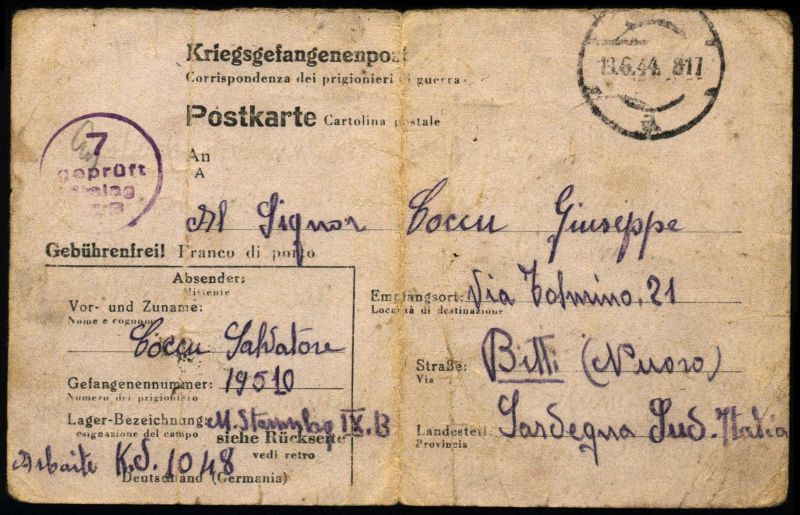 Kriegsgefangenenpost
Corrispondenza dei prigionieri di guerra
13.6.44. 817
Postkarte Cartolina postale
7
geprüft
Stalag
An
A
Al Signor Coccu Giuseppe
Gebührenfrei! Franco di porto
Absender:
Mittente
Vor- und Zuname:
Nome e cognome
Coccu Salvatore
Gefangenennummer: 19510
Numero del prigioniero
Lager-Bezeichnung: M. Stammlag IX.B
esignazione del campo
siehe Rückseite
vedi retro
Arbaite K.d. 1048
Deutschland (Germania)
Empfangsort: Via Tolmino. 21
Località di destinazione
Straße: Bitti (Nuoro)
Via
Landesteil: Sardegna Sud. Italia
Provincia